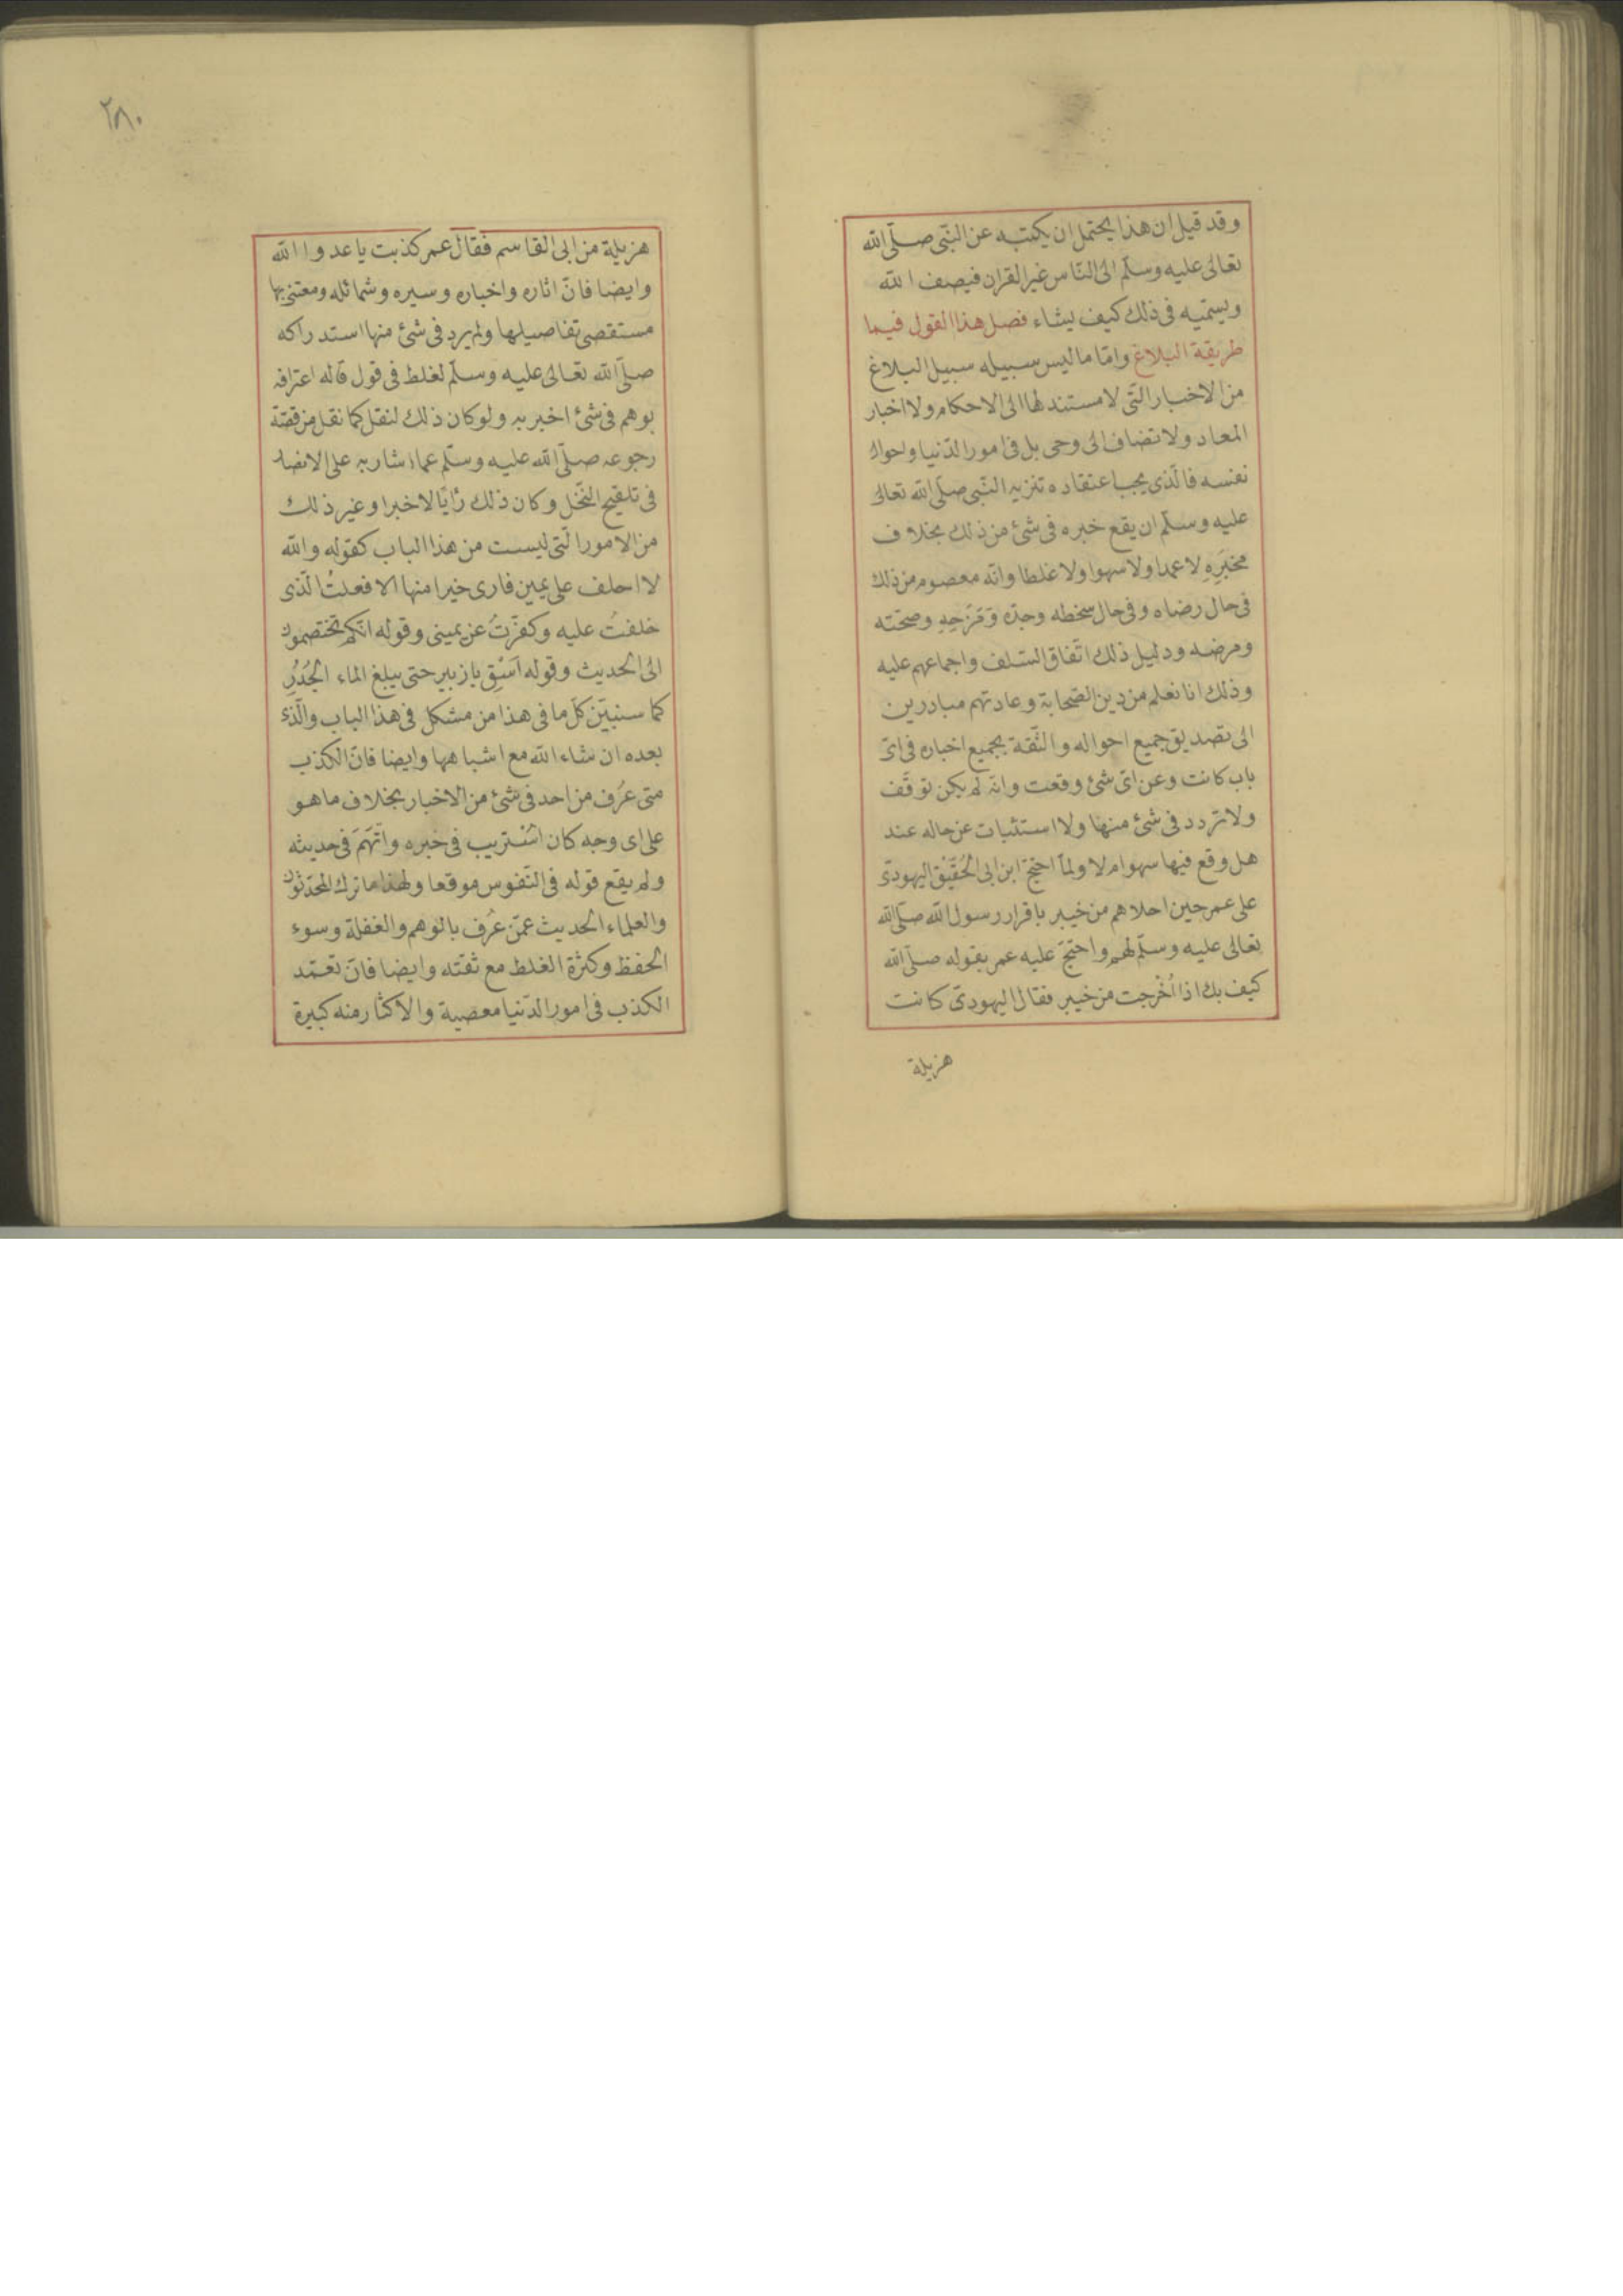 وقد قيل ان هذا يحتمل ان يكتبه عن النبّى صلّى الله
تعالى عليه وسلّم الى النّاس غير القران فيصف الله
ويسمّيه فى ذلك كيف يشاء فصل هذا القول فيما
طريقة البلاغ وامّا ما ليس سبيله سبيل البلاغ
من الاخبار الّتى لا مستند لها الى الاحكام ولا اخبار
المعاد ولا تضاف الى وحى بل فى امور الدّنيا واحوال
نفسه فالّذى يجب اعتقاده تنزيه النّبى صلّى الله تعالى
عليه وسلّم ان يقع خبره فى شئ من ذلك بخلاف
مخبَرِهِ لا عمدا ولا سهوا ولا غلطا وانّه معصوم من ذلك
فى حال رضاه وفى حال سخطه وجدّه وَمَزحِهِ وصحّته
ومرضه ودليل ذلك اتّفاق السّلف واجماعهم عليه
وذلك انا نعلم من دين الصّحابة وعادتهم مبادرين
الى تصديق جميع احواله والثّقة بجميع اخباره فى اىّ
باب كانت وعن اىّ شئ وقعت وانّه لم يكن توقّف
ولا تردد فى شئ منها ولا استثبات عن حاله عند
هل وقع فيها سهوا م لا ولمّا احتجّ ابن ابى الحُقَيْق اليهودىّ
على عمر حين اجلاهم من خيبر باقرار رسول الله صلّى الله
تعالى عليه وسلّم لهم واحتجّ عليه عمر بقوله صلّى الله
كيف بك اذا اُخْرجت من خيبر فقال اليهودىّ كانت
هزيلة
٢٨٠
هزيلة من ابى القاسم فقال عمر كذبت يا عدوا الله
وايضا فانّ اثاره واخباره وسيره وشمائله ومعتنى بها
مستقصى تفاصيلها ولم يرد فى شئ منها استدراكه
صلّى الله تعالى عليه وسلّم لغلط فى قول قاله اعترافه
بوهم فى شئ اخبر به ولو كان ذلك لنقل كما نقل من قصّة
رجوعه صلّى الله عليه وسلّم عما اشار به على الانصار
فى تلقيح النّخل وكان ذلك رأيًا لا خبرا وغير ذلك
من الامور الّتى ليست من هذا الباب كقوله والله
لا احلف على يمين فارى خيرا منها الا فعلتُ الّذى
حلفتُ عليه وكفّرتُ عن يمينى وقوله انّكم تختصمون
الى الحديث وقوله اَسْقِ يا زبير حتى يبلغ الماء الجُدُرِ
كما سنبيّن كلّ ما فى هذا من مشكل فى هذا الباب والّذى
بعده ان شاء الله مع اشباهها وايضا فانّ الكذب
متى عُرف من احد فى شئ من الاخبار بخلاف ما هو
على اى وجه كان اسْتريب فى خبره واتُّهَمَ فى حديثه
ولم يقع قوله فى النّفوس موقعا ولهذا ما ترك المحدّثون
والعلماء الحديث عمّن عُرف بالوهم والغفلة وسوء
الحفظ وكثرة الغلط مع ثقته وايضا فانّ تعمّد
الكذب فى امور الدّنيا معصية والاكثار منه كبيرة